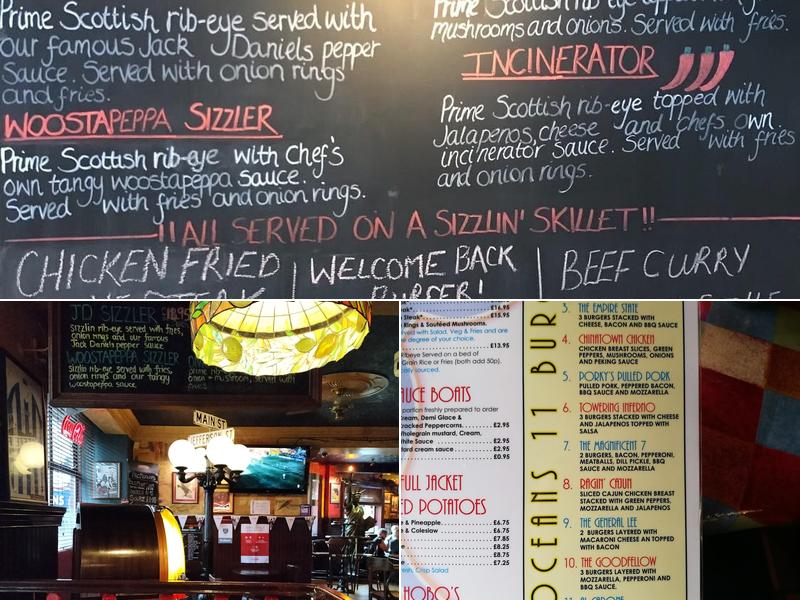 Prime Scottish rib-eye served with
our famous Jack Daniels pepper
Sauce. Served with onion rings
and fries.
WOOSTAPEPPA SIZZLER
Prime Scottish rib-eye with Chef's
own tangy woostapeppa sauce.
Served with fries and onion rings.
mushrooms and onions. Served with fries.
INCINERATOR
Prime Scottish rib-eye topped with
Jalapenos, cheese and chefs own
incinerator sauce. Served with fries
and onion rings.
!! All SERVED ON A SIZZLIN' SKILLET !!
CHICKEN FRIED
WELCOME BACK
BURGER!
BEEF CURRY
JD SIZZLER
Sizzlin rib-eye served with fries,
onion rings and our famous
Jack Daniels pepper sauce
WOOSTAPEPPA SIZZLER
Sizzlin rib-eye served with fries,
onion rings and our tangy
woostapeppa sauce.
MAIN ST
JEFFERSON ST
Coca-Cola
£14.95
£15.95
Rings & Sautéed Mushrooms.
ved with Salad. Veg & Fries and are
e degree of your choice.
£13.95
Ribeye Served on a bed of
Grain Rice or Fries (both add 50p).
ally sourced.
AUCE BOATS
portion freshly prepared to order
ream, Demi Glace &
racked Peppercorns. £2.95
holegrain mustard, Cream,
hite Sauce £2.95
tard cream sauce £2.95
£0.95
FULL JACKET
ED POTATOES
e & Pineapple £6.75
e & Coleslaw £6.75
£7.85
£8.25
£8.75
£7.25
resh, Crisp Salad
HOBO'S
OCEANS 11 BURG
3. THE EMPIRE STATE
3 BURGERS STACKED WITH
CHEESE, BACON AND BBQ SAUCE
4. CHINATOWN CHICKEN
CHICKEN BREAST SLICES, GREEN
PEPPERS, MUSHROOMS, ONIONS
AND PEKING SAUCE
5. PORKY'S PULLED PORK
PULLED PORK, PEPPERED BACON,
BBQ SAUCE AND MOZZARELLA
6. TOWERING INFERNO
3 BURGERS STACKED WITH CHEESE
AND JALAPENOS TOPPED WITH
SALSA
7. THE MAGNIFICENT 7
2 BURGERS, BACON, PEPPERONI,
MEATBALLS, DILL PICKLE, BBQ
SAUCE AND MOZZARELLA
8. RAGIN' CAJUN
SLICED CAJUN CHICKEN BREAST
STACKED WITH GREEN PEPPERS,
MOZZARELLA AND JALAPENOS
9. THE GENERAL LEE
2 BURGERS LAYERED WITH
MACARONI CHEESE AN TOPPED
WITH BACON
10. THE GOODFELLOW
3 BURGERS LAYERED WITH
MOZZARELLA, PEPPERONI AND
BBQ SAUCE.